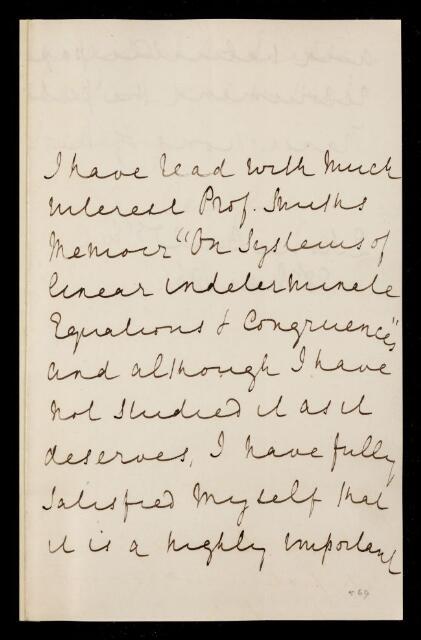 I have read with much
interest Prof. Smith's
Memoir "On Systems of
linear indeterminate
Equations & Congruences"
and although I have
not studied it as it
deserves, I have fully
satisfied myself that
it is a highly important